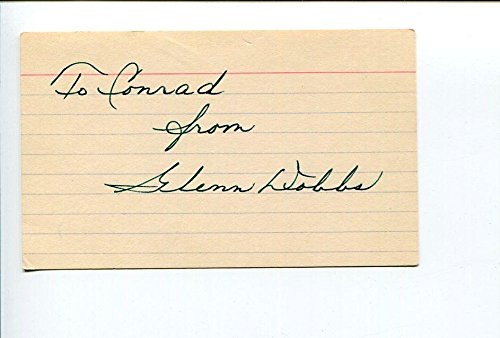 To Conrad
from
Glenn Dobbs